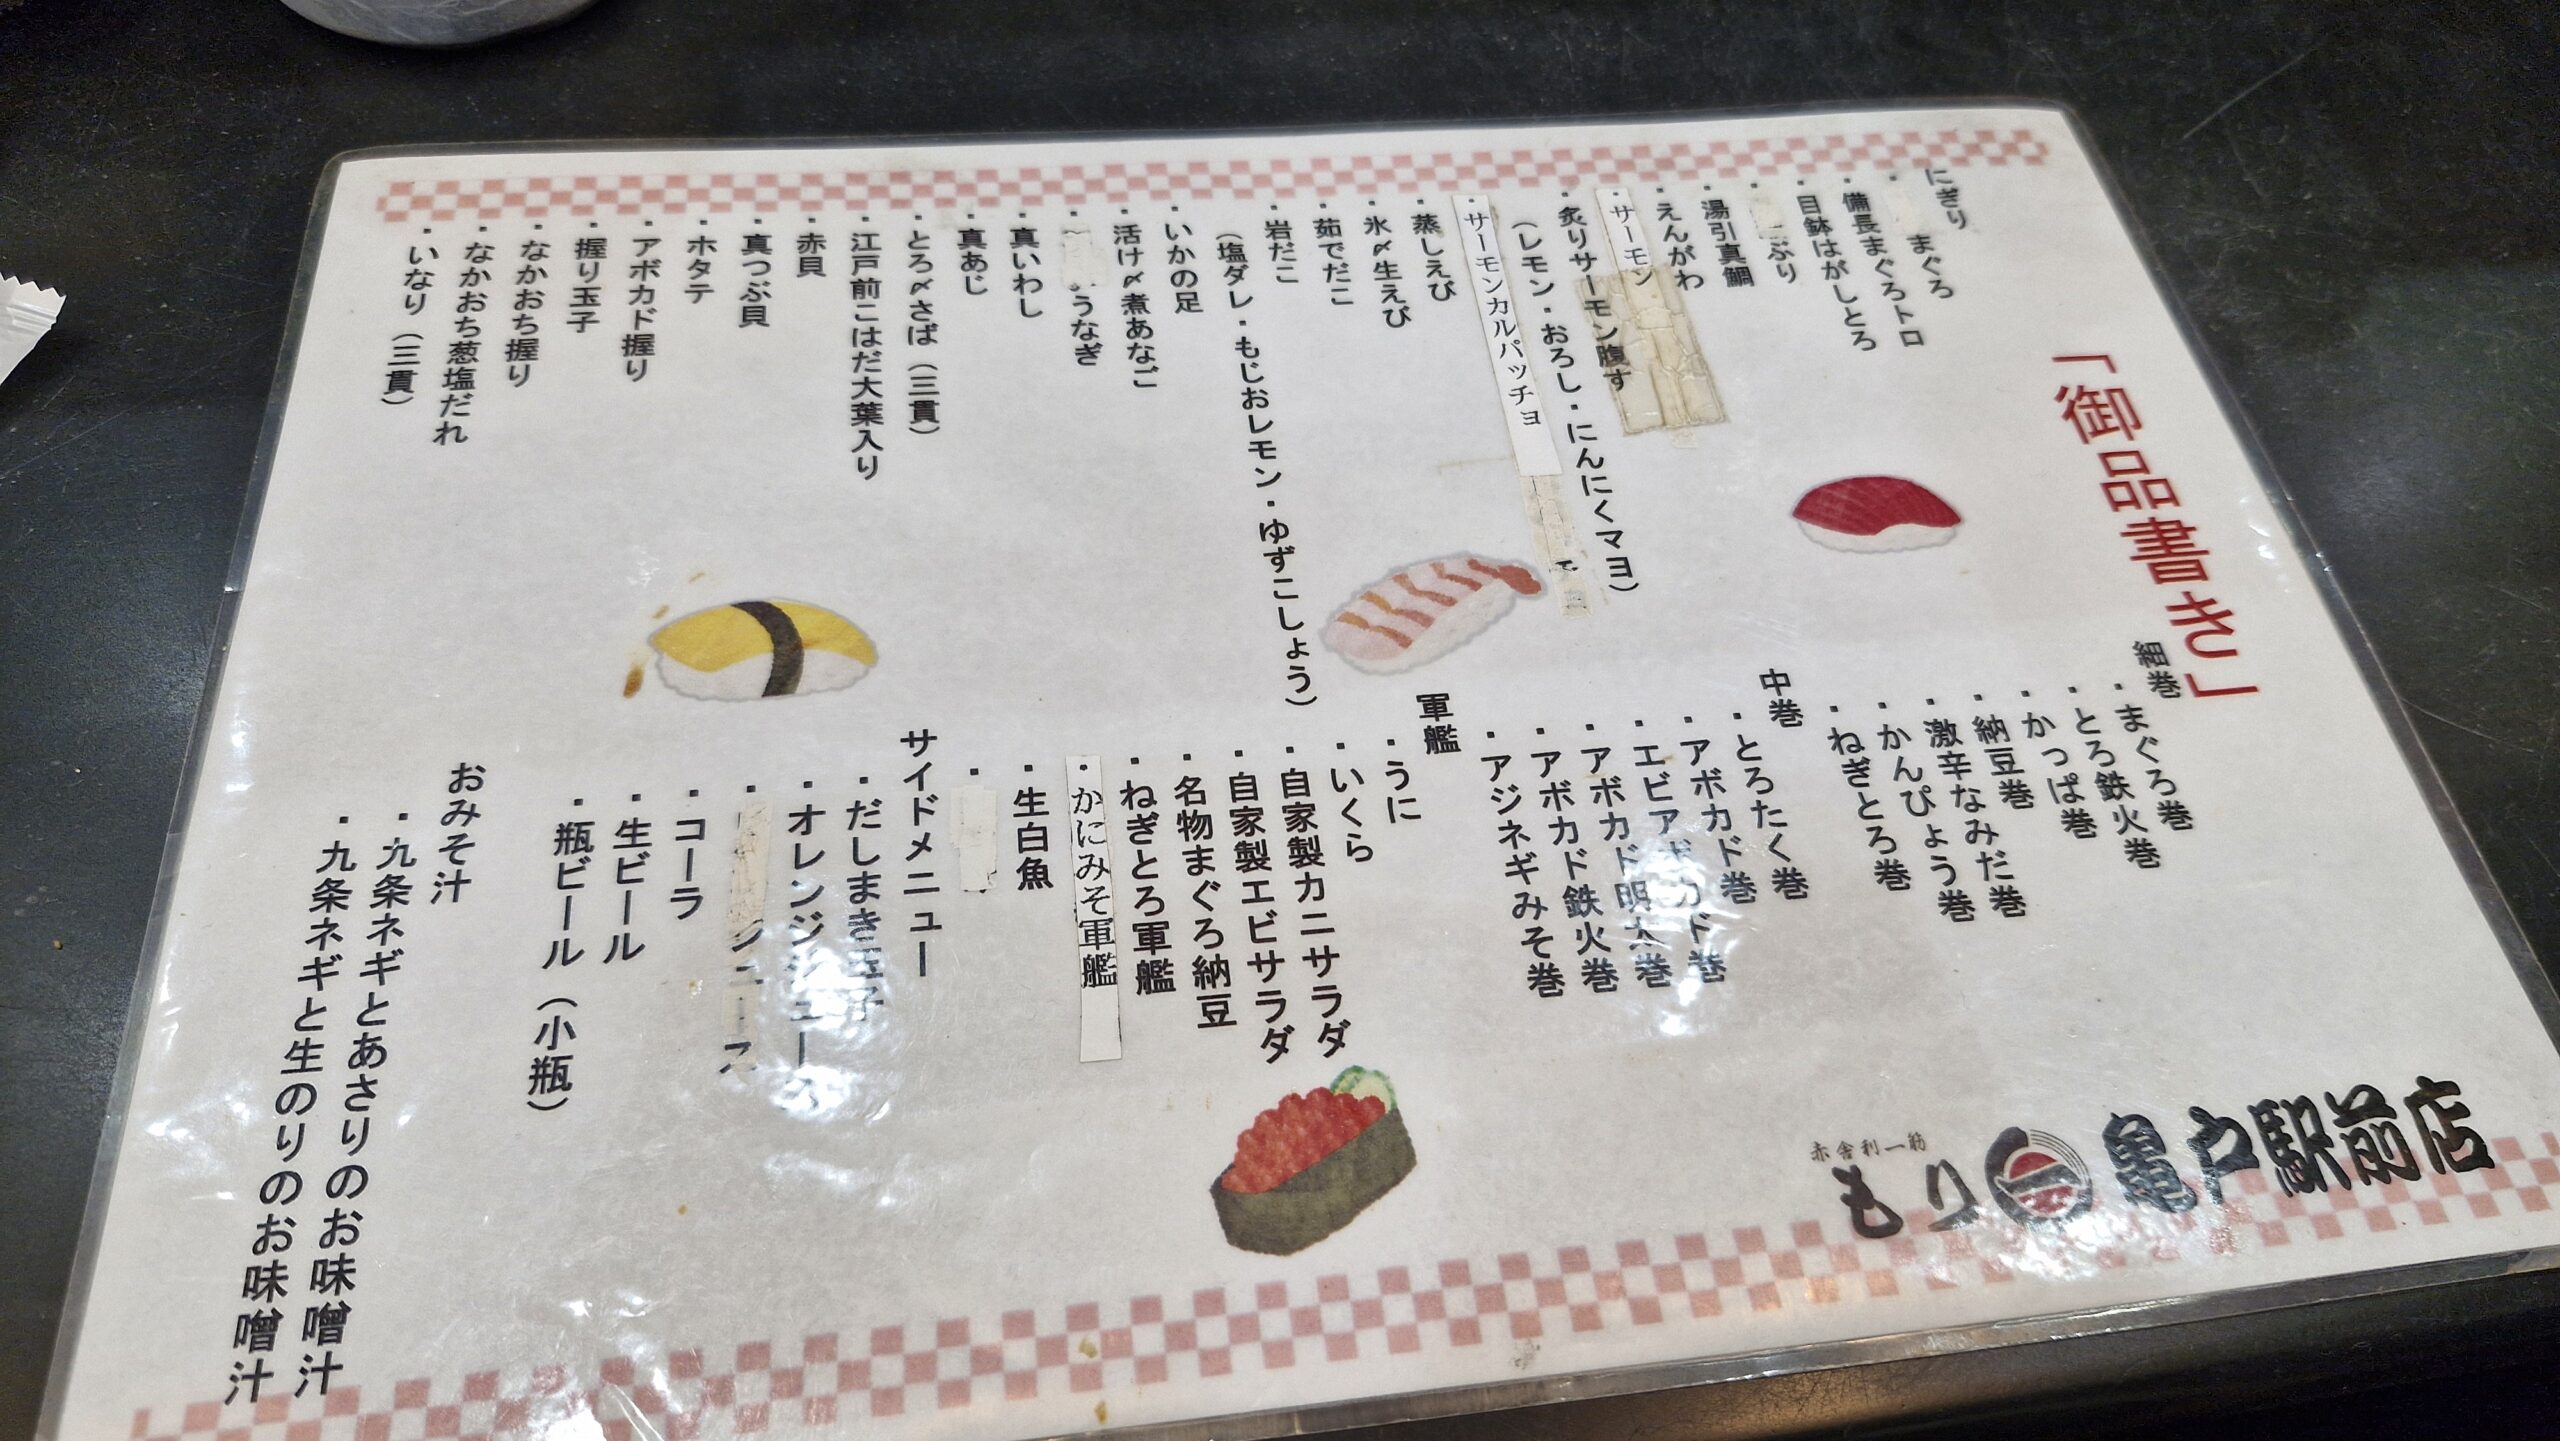 「御品書き」
にぎり
・まぐろ
・備長まぐろトロ
・目鉢はがしとろ
・ぶり
・湯引真鯛
・えんがわ
・サーモン
・炙りサーモン腹す
(レモン・おろし・にんにくマヨ)
・サーモンカルパッチョ
・蒸しえび
・氷〆生えび
・茹でだこ
・岩だこ
(塩ダレ・もじおレモン・ゆずこしょう)
・いかの足
・活け〆煮あなご
・うなぎ
・真いわし
・真あじ
・とろ〆さば(三貫)
・江戸前こはだ大葉入り
・赤貝
・真つぶ貝
・ホタテ
・アボカド握り
・握り玉子
・なかおち握り
・なかおち葱塩だれ
・いなり(三貫)
細巻
・まぐろ巻
・とろ鉄火巻
・かっぱ巻
・納豆巻
・激辛なみだ巻
・かんぴょう巻
・ねぎとろ巻
中巻
・とろたく巻
・アボカド巻
・エビアボカド巻
・アボカド明太巻
・アボカド鉄火巻
・アジネギみそ巻
軍艦
・うに
・いくら
・自家製カニサラダ
・自家製エビサラダ
・名物まぐろ納豆
・ねぎとろ軍艦
・かにみそ軍艦
・生白魚
サイドメニュー
・だしまき玉子
・オレンジジュース
・コーラ
・生ビール
・瓶ビール(小瓶)
おみそ汁
・九条ネギとあさりのお味噌汁
・九条ネギと生のりのお味噌汁
赤舎利一筋
もり 亀戸駅前店